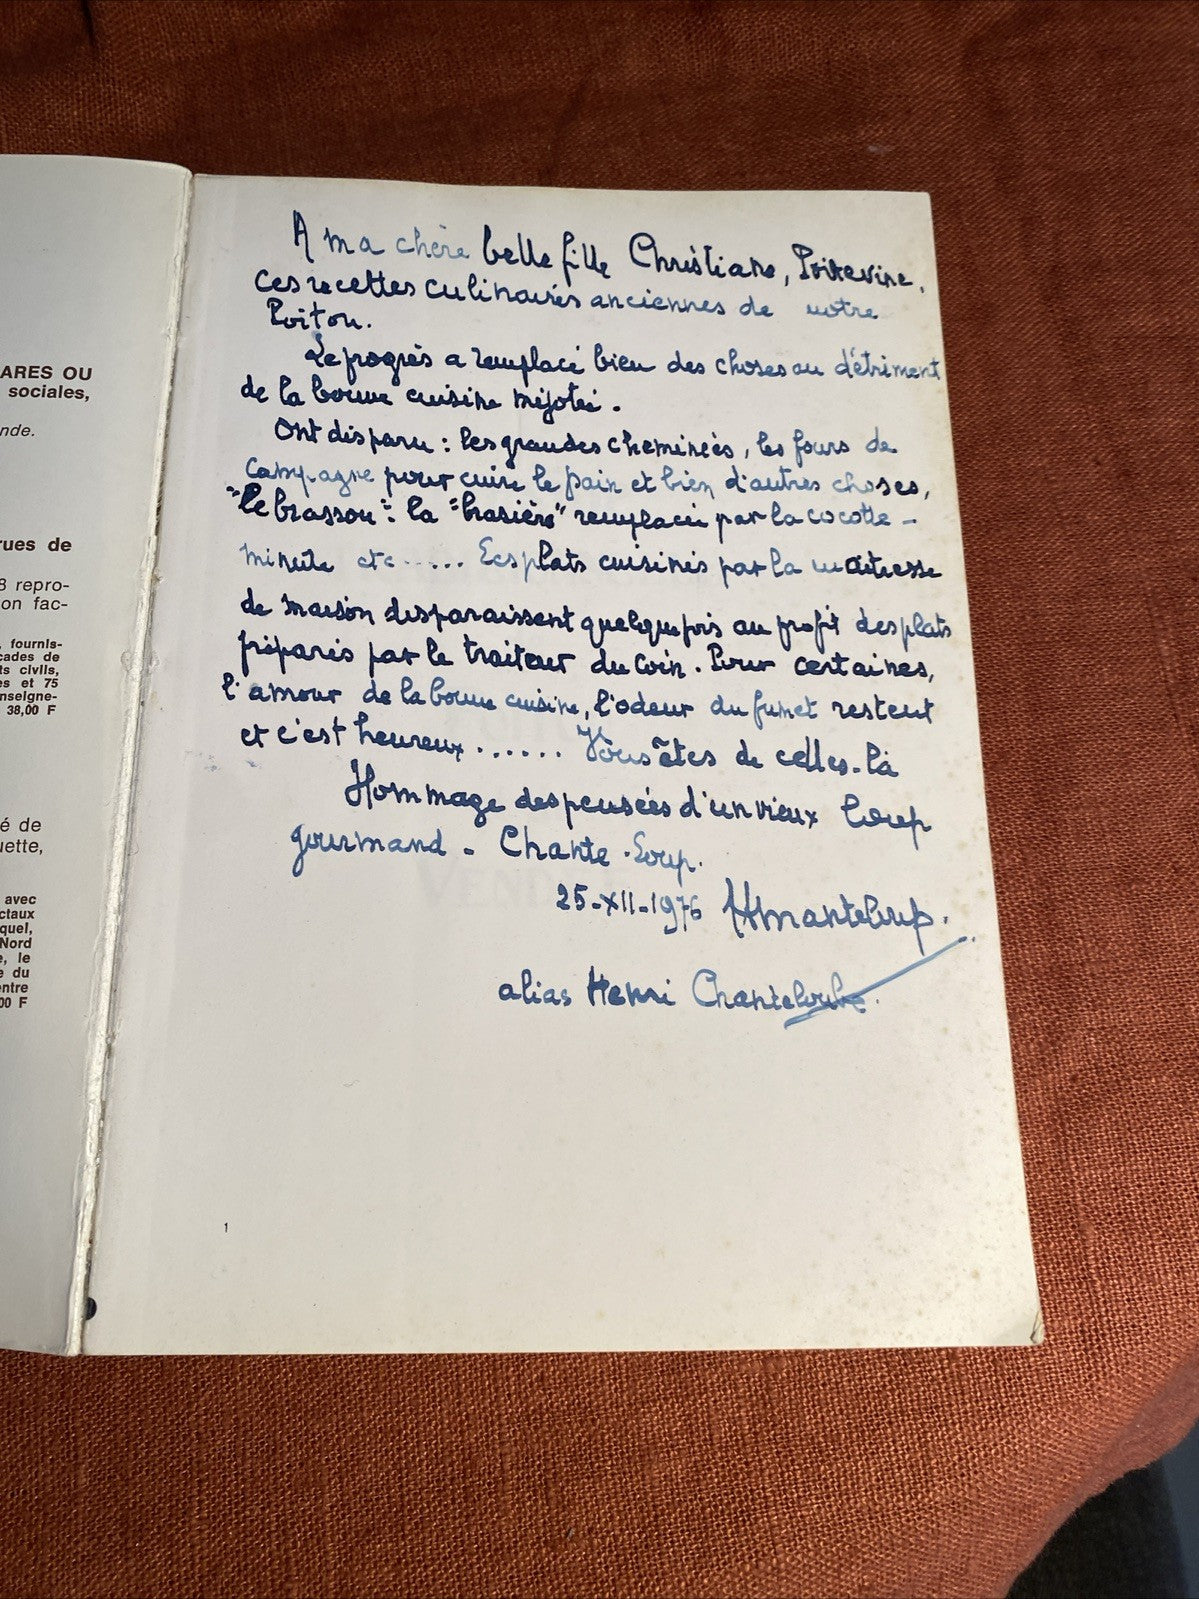 ARES OU
sociales,
nde.
rues de
8 repro-
on fac-
fournis-
cades de
ts civils,
es et 75
nseigne-
38,00 F
é de
uette,
avec
ctaux
quel,
Nord
e, le
e du
entre
00 F
A ma chère belle fille Christiane, Poitevine,
ces recettes culinaires anciennes de notre
Poitou.
Le progrès a remplacé bien des choses au détriment
de la bonne cuisine mijotée.
Ont disparu : les grandes cheminées, les fours de
campagne pour cuire le pain et bien d'autres choses,
"le brasson": la "brasière" remplacée par la cocotte-
minute etc ...... Les plats cuisinés par la maîtresse
de maison disparaissent quelquefois au profit des plats
préparés par le traiteur du coin. Pour certaines,
l'amour de la bonne cuisine, l'odeur du fumet restent
et c'est heureux ...... Vous êtes de celles-là
Hommage des pensées d'un vieux Loup
gourmand - Chante-Loup.
25-XII-1976 HManteloup.
alias Henri Chanteloube.
1